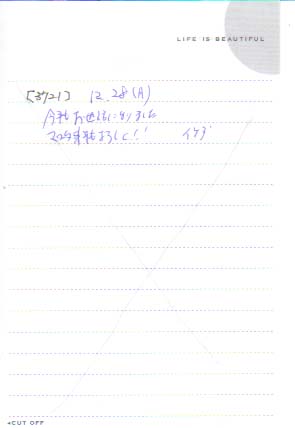 LIFE IS BEAUTIFUL
12.28(月)
今年もお世話になりました
来年もよろしく!!
CUT OFF